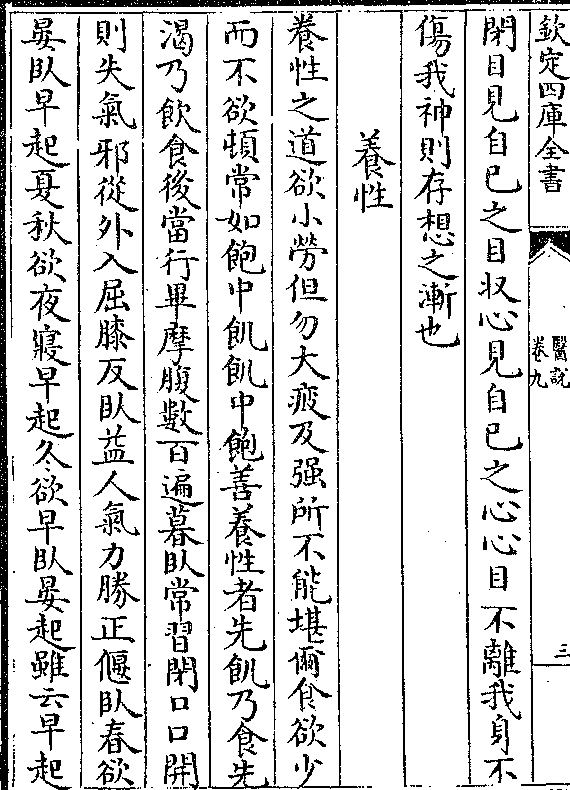 欽定四庫全書
醫說
卷九
三
閉目見自己之目収心見自己之心心目不離我身不
傷我神則存想之漸也
養性
養性之道欲小勞但勿大疲及强所不能堪爾食欲少
而不欲頓常如飽中飢飢中飽善養性者先飢乃食先
渴乃飲食後當行畢摩腹數百遍暮臥常習閉口口開
則失氣邪從外入屈膝反臥益人氣力勝正偃臥春欲
晏臥早起夏秋欲夜寢早起冬欲早臥晏起雖云早起